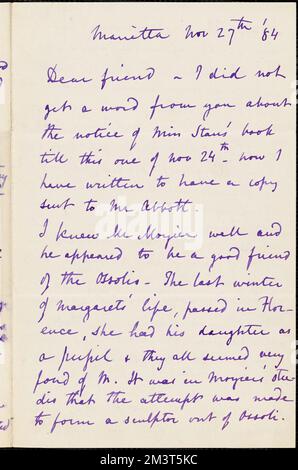 Marietta Nov 27th '84
Dear friend - I did not
get a word from you about
the notice of Miss Stars' book
till this one of Nov 24th - now I
have written to have a copy
sent to Mr Abbott.
I knew Mr Mozier well and
he appeared to be a good friend
of the Ossolis - The last winter
of Margarets' life, passed in Flor-
ence, she had his daughter as
a pupil & they all seemed very
fond of M. It was in Mozier's stu-
dio that the attempt was made
to form a sculptor out of Ossoli.
alamy
Image ID: 2M3T5KC
www.alamy.com